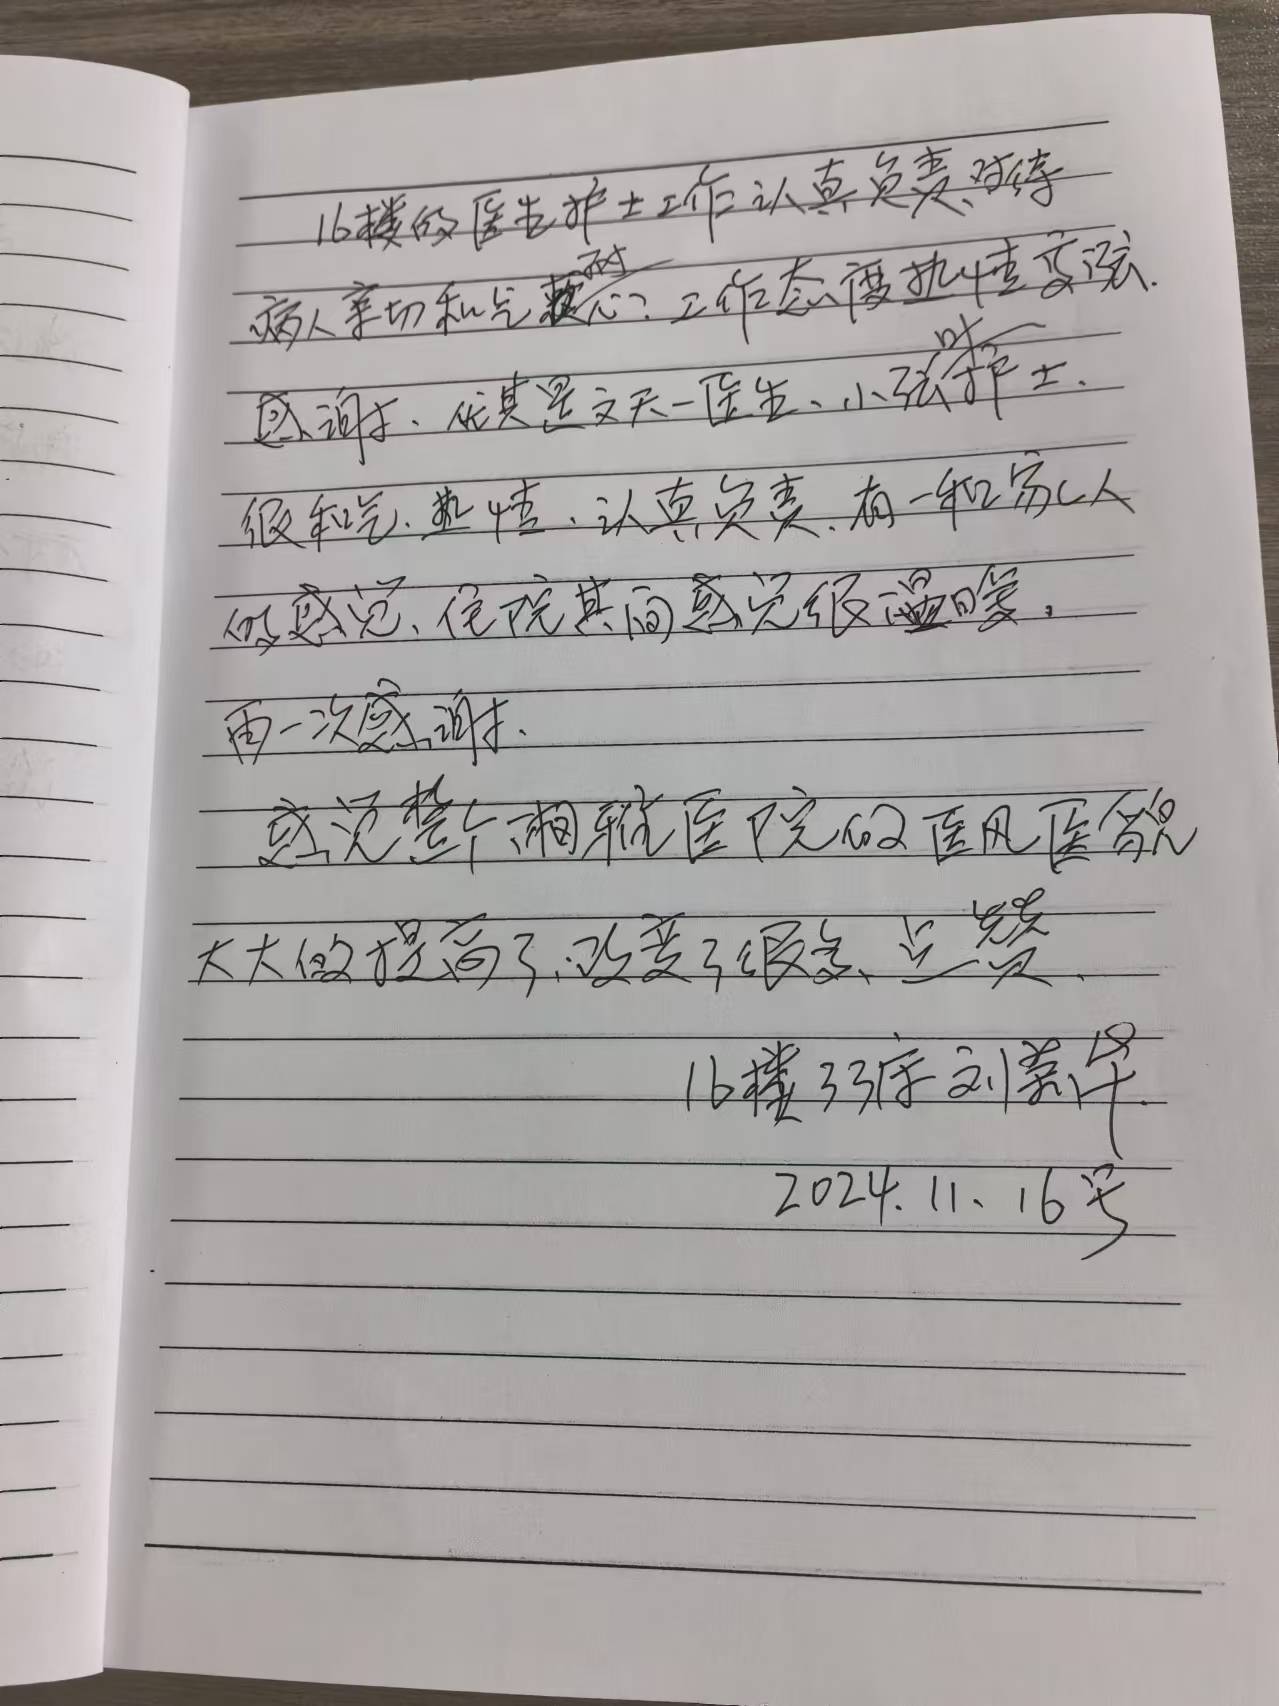 16楼的医生护士工作认真负责、对待
病人亲切和气耐心、工作态度热情
感谢、优其是文天一医生、小张叶护士、
很和气、热情、认真负责、有一种家人
的感觉、住院其间感觉很温暖,
再一次感谢、
感觉整个湘雅医院的医风医貌
大大的提高了、改变了很多、点赞、
16楼33床刘
2024.11、16号